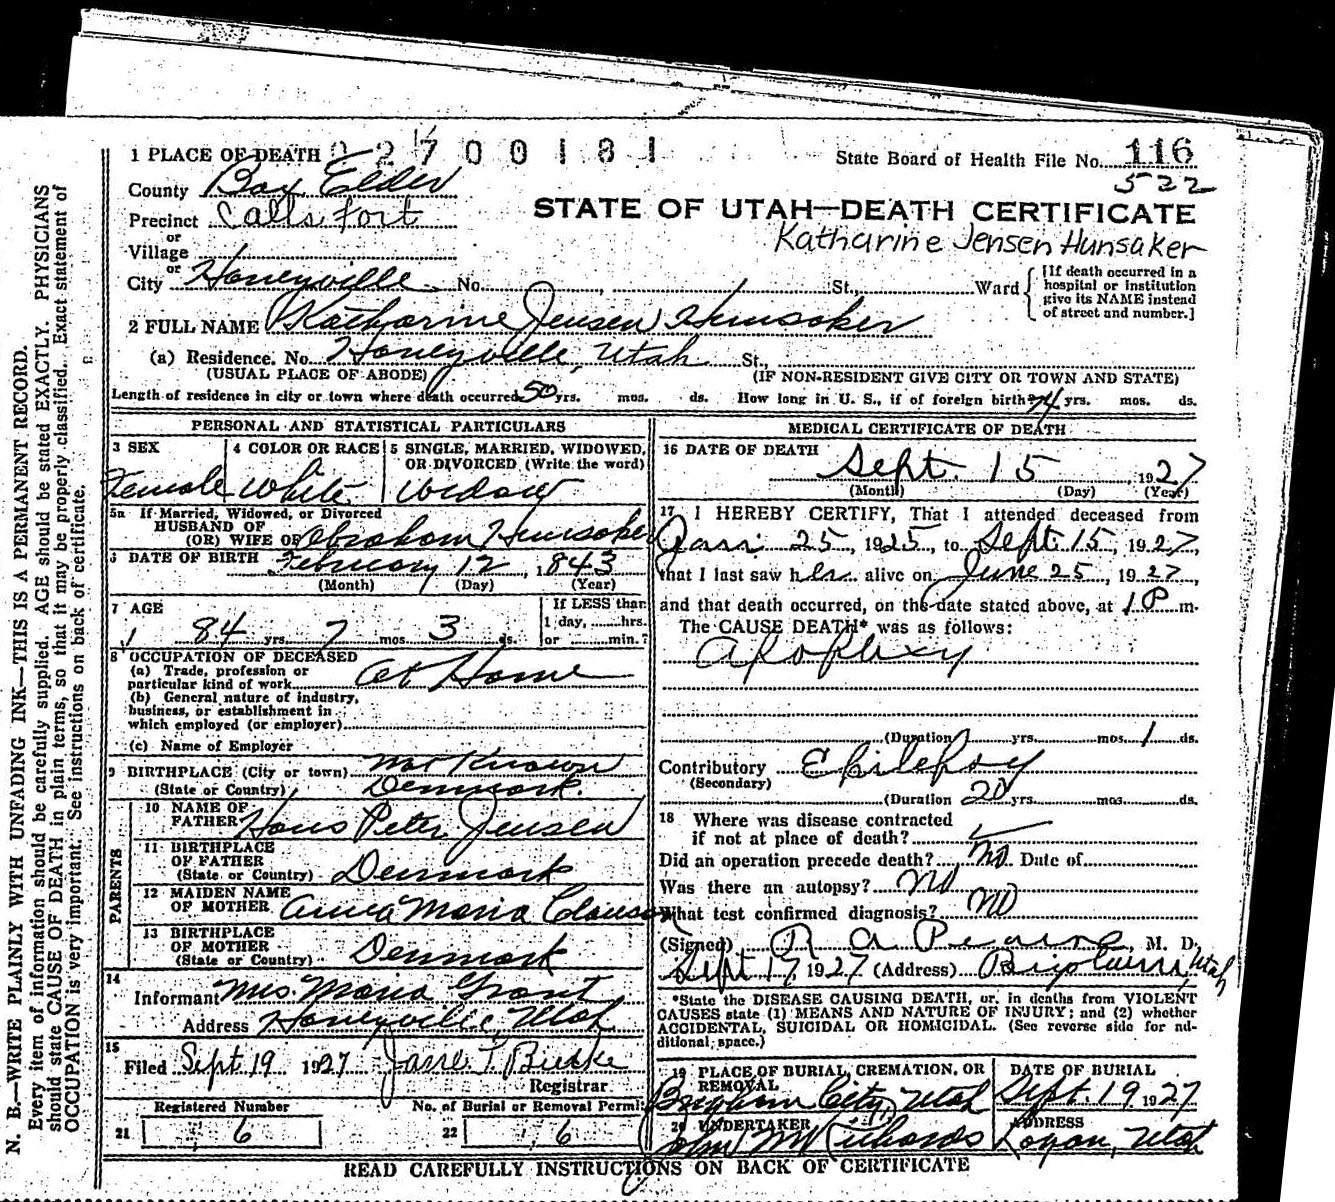 1 PLACE OF DEATH 02700181
State Board of Health File No. 116
522
County Box Elder
Precinct Calls Fort
or
Village
or
City Honeyville No. , St., Ward
[If death occurred in a hospital or institution give its NAME instead of street and number.]
STATE OF UTAH—DEATH CERTIFICATE
Katharine Jensen Hunsaker
2 FULL NAME Katharine Jensen Hunsaker
(a) Residence. No. Honeyville, Utah St.,
(USUAL PLACE OF ABODE) (IF NON-RESIDENT GIVE CITY OR TOWN AND STATE)
Length of residence in city or town where death occurred 50 yrs. mos. ds. How long in U. S., if of foreign birth? 74 yrs. mos. ds.
PERSONAL AND STATISTICAL PARTICULARS
3 SEX Female
4 COLOR OR RACE White
5 SINGLE, MARRIED, WIDOWED, OR DIVORCED (Write the word) Widow
5a If Married, Widowed, or Divorced
HUSBAND OF
(OR) WIFE OF Abraham Hunsaker
6 DATE OF BIRTH February 12, 1843
(Month) (Day) (Year)
7 AGE
84 yrs. 7 mos. 3 ds.
If LESS than 1 day, ......hrs. or ......min.?
8 OCCUPATION OF DECEASED
(a) Trade, profession or particular kind of work At Home
(b) General nature of industry, business, or establishment in which employed (or employer)
(c) Name of Employer
9 BIRTHPLACE (City or town) Not Known
(State or Country) Denmark.
PARENTS
10 NAME OF FATHER Hans Peter Jensen
11 BIRTHPLACE OF FATHER
(State or Country) Denmark
12 MAIDEN NAME OF MOTHER Maria Clauson
13 BIRTHPLACE OF MOTHER
(State or Country) Denmark
14
Informant Mrs. Maria Grant
Address Honeyville, Utah
15
Filed Sept 19 1927
Registrar
Registered Number
21 6
No. of Burial or Removal Permit
22 6
MEDICAL CERTIFICATE OF DEATH
16 DATE OF DEATH
Sept. 15, 1927
(Month) (Day) (Year)
17 I HEREBY CERTIFY, That I attended deceased from
Jan. 25, 1925, to Sept 15, 1927,
that I last saw her alive on June 25, 1927,
and that death occurred, on the date stated above, at 1 P m.
The CAUSE DEATH* was as follows:
Apoplexy
(Duration) yrs. mos. 1 ds.
Contributory Epilepsy
(Secondary)
(Duration 20 yrs. mos. ds.
18 Where was disease contracted
if not at place of death?
Did an operation precede death? No. Date of
Was there an autopsy? No
What test confirmed diagnosis? No
(Signed) R A Pearse, M. D.
Sept 17, 1927 (Address) Brigham, Utah
*State the DISEASE CAUSING DEATH, or, in deaths from VIOLENT
CAUSES state (1) MEANS AND NATURE OF INJURY; and (2) whether
ACCIDENTAL, SUICIDAL OR HOMICIDAL. (See reverse side for additional space.)
19 PLACE OF BURIAL, CREMATION, OR REMOVAL
Brigham City, Utah
DATE OF BURIAL
Sept. 19 1927
20 UNDERTAKER
John M Richards
ADDRESS
Logan, Utah
READ CAREFULLY INSTRUCTIONS ON BACK OF CERTIFICATE
N. B.—WRITE PLAINLY WITH UNFADING INK—THIS IS A PERMANENT RECORD.
Every item of information should be carefully supplied. AGE should be stated EXACTLY. PHYSICIANS
should state CAUSE OF DEATH in plain terms, so that it may be properly classified. Exact statement of
OCCUPATION is very important. See instructions on back of certificate.